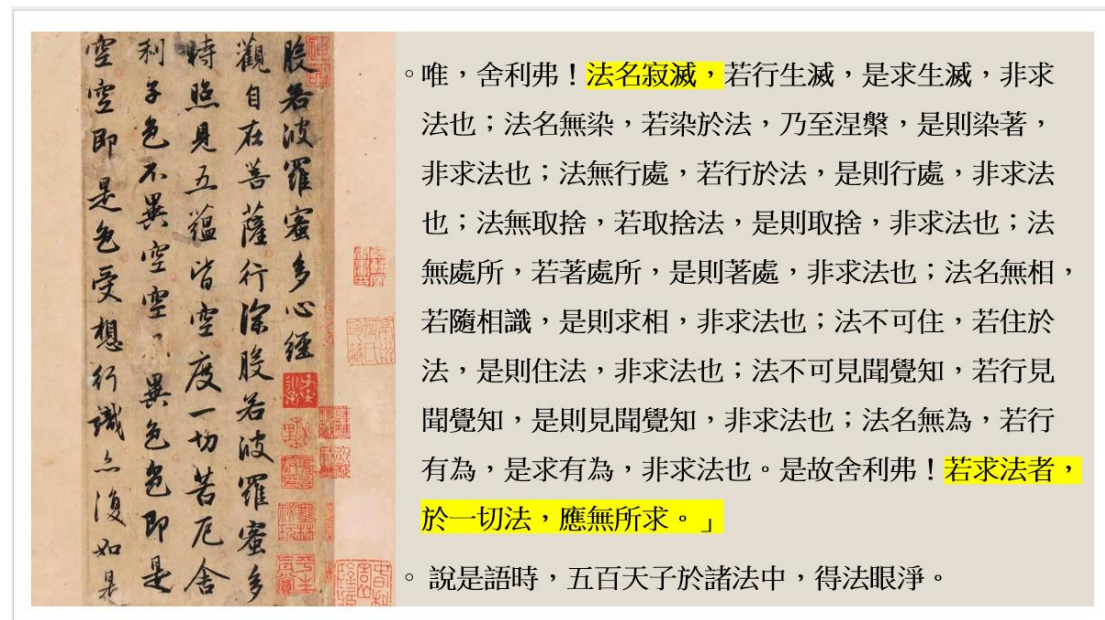 般若波羅蜜多心經
觀自在菩薩行深般若波羅蜜多
時照見五蘊皆空度一切苦厄舍
利子色不異空空不異色色即是
空空即是色受想行識亦復如是
。唯，舍利弗！法名寂滅，若行生滅，是求生滅，非求
法也；法名無染，若染於法，乃至涅槃，是則染著，
非求法也；法無行處，若行於法，是則行處，非求法
也；法無取捨，若取捨法，是則取捨，非求法也；法
無處所，若著處所，是則著處，非求法也；法名無相，
若隨相識，是則求相，非求法也；法不可住，若住於
法，是則住法，非求法也；法不可見聞覺知，若行見
聞覺知，是則見聞覺知，非求法也；法名無為，若行
有為，是求有為，非求法也。是故舍利弗！若求法者，
於一切法，應無所求。」
。說是語時，五百天子於諸法中，得法眼淨。